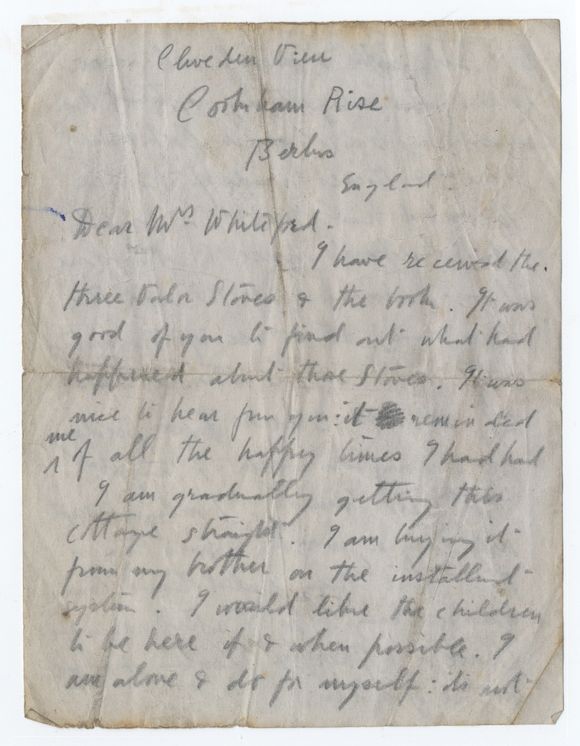 Cliveden View
Cookham Rise
Berks
England.
Dear Mrs Whiteford.
I have received the
three Valor Stoves & the book. It was
good of you to find out what had
happened about those Stoves. It was
nice to hear from you: it reminded
me
of all the happy times I had had
I am gradually getting this
cottage straight. I am buying it
from my brother on the installment
system. I would like the children
to be here if & when possible. I
am alone & do for myself: its not